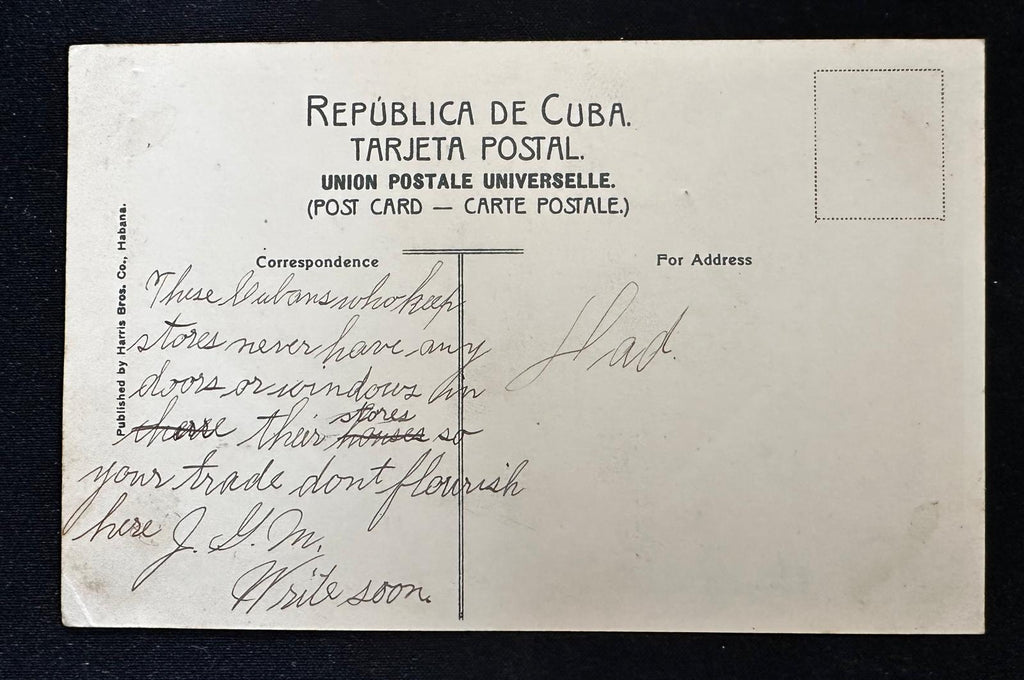 REPÚBLICA DE CUBA.
TARJETA POSTAL.
UNION POSTALE UNIVERSELLE.
(POST CARD — CARTE POSTALE.)
Published by Harris Bros. Co., Habana.
Correspondence
These Cubans who keep
stores never have any
doors or windows in
there their stores
houses so
your trade dont flourish
here J. G. M.
Write soon.
For Address
Dad.